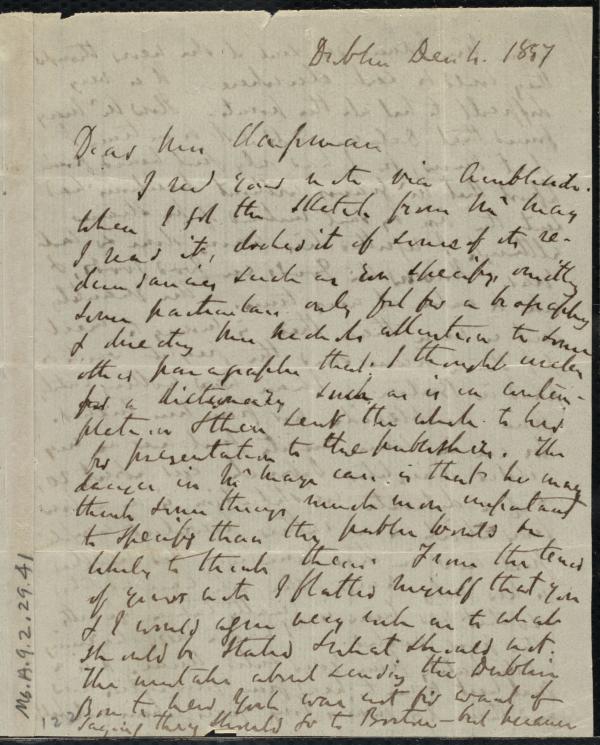 Dublin Dec 4. 1857
Dear Mrs Chapman
I recd your note via Ambleside.
When I got the sketch from Mr May
I read it, docked it of some of its re-
dundancies such as you specify, omitting
some particulars only fit for a biography
& directing Mrs Nichols attention to some
other paragraphs that I thought unfit
for a dictionary such as is in contem-
plation & then sent the whole to her
for presentation to the publisher. The
danger in Mr Mays case is that he may
think some things much more important
to specify than the public would be
likely to think them. From the tenor
of your note I flatter myself that you
& I would agree very well as to what
should be stated & what should not.
The mistake about sending the Dublin
Box to New York was not for want of
saying they should go to Boston - but because
M6.A.9.2.29.41
122